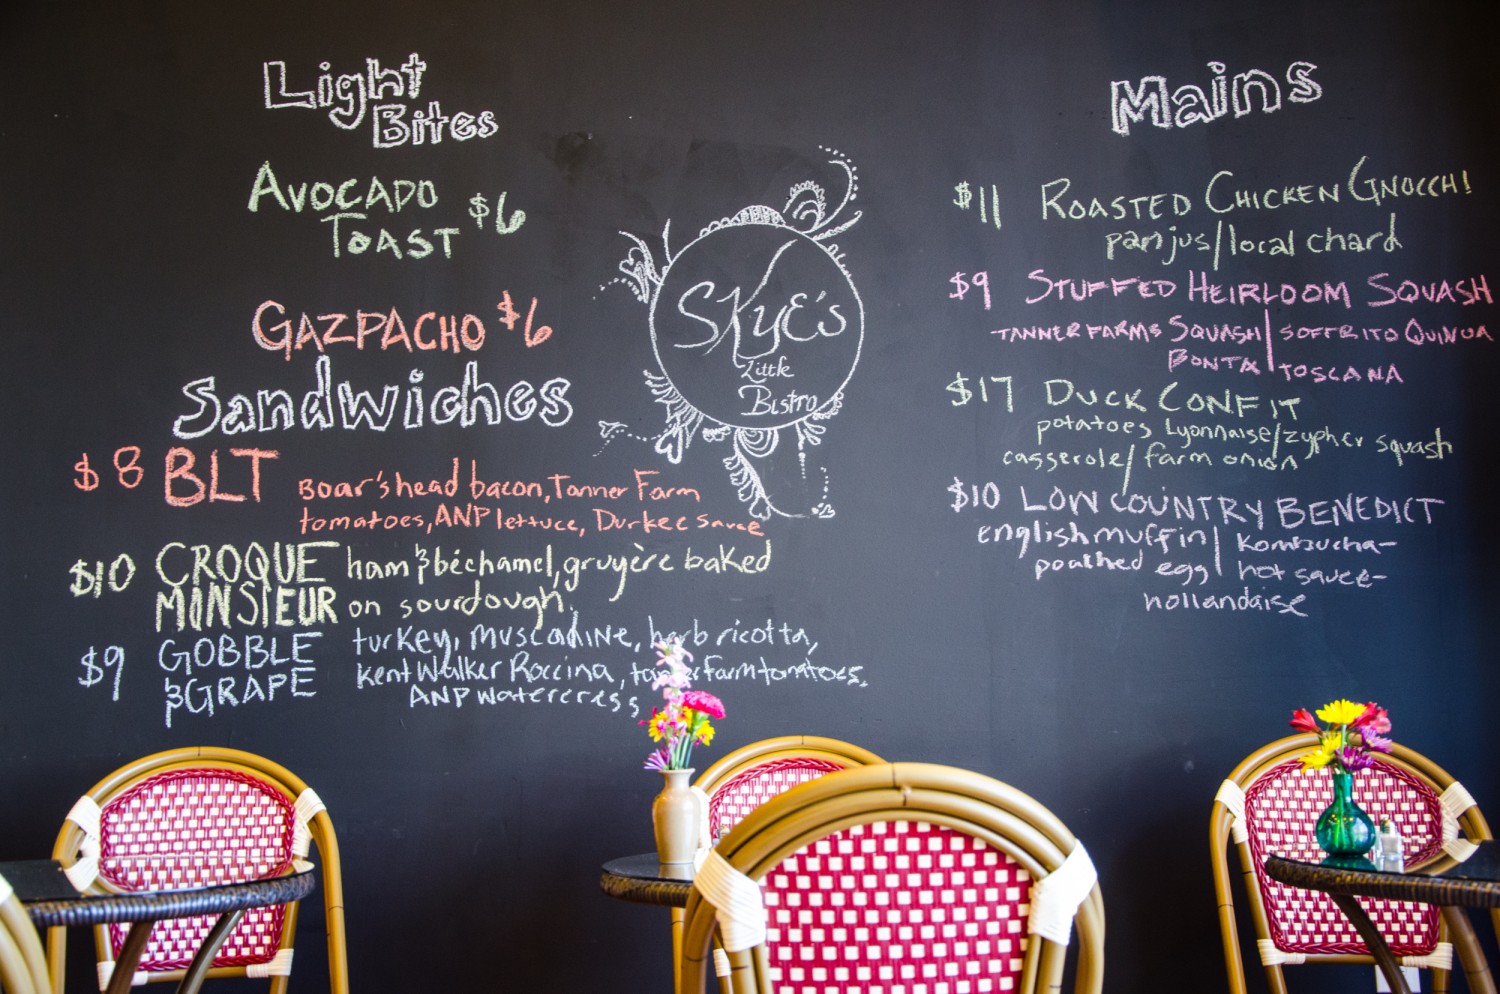 Light
Bites
AVOCADO
TOAST $6
GAZPACHO $6
Sandwiches
$8 BLT Boar's head bacon, Tanner Farm
tomatoes, ANP lettuce, Durkee sauce
$10 CROQUE ham & béchamel, gruyère baked
MONSIEUR on sourdough.
$9 GOBBLE turkey, muscadine, herb ricotta,
& GRAPE Kent Walker Roccina, tanner farm tomatoes,
ANP watercress
SKYE's
Little
BISTRO
Mains
$11 ROASTED CHICKEN GNOCCHI
pan jus/local chard
$9 STUFFED HEIRLOOM SQUASH
TANNER FARMS SQUASH | SOFFRITO QUINOA
BONTA | TOSCANA
$17 DUCK CONFIT
potatoes Lyonnaise/zypher squash
casserole/farm onion
$10 LOW COUNTRY BENEDICT
english muffin | kombucha-
poached egg | hot sauce-
hollandaise